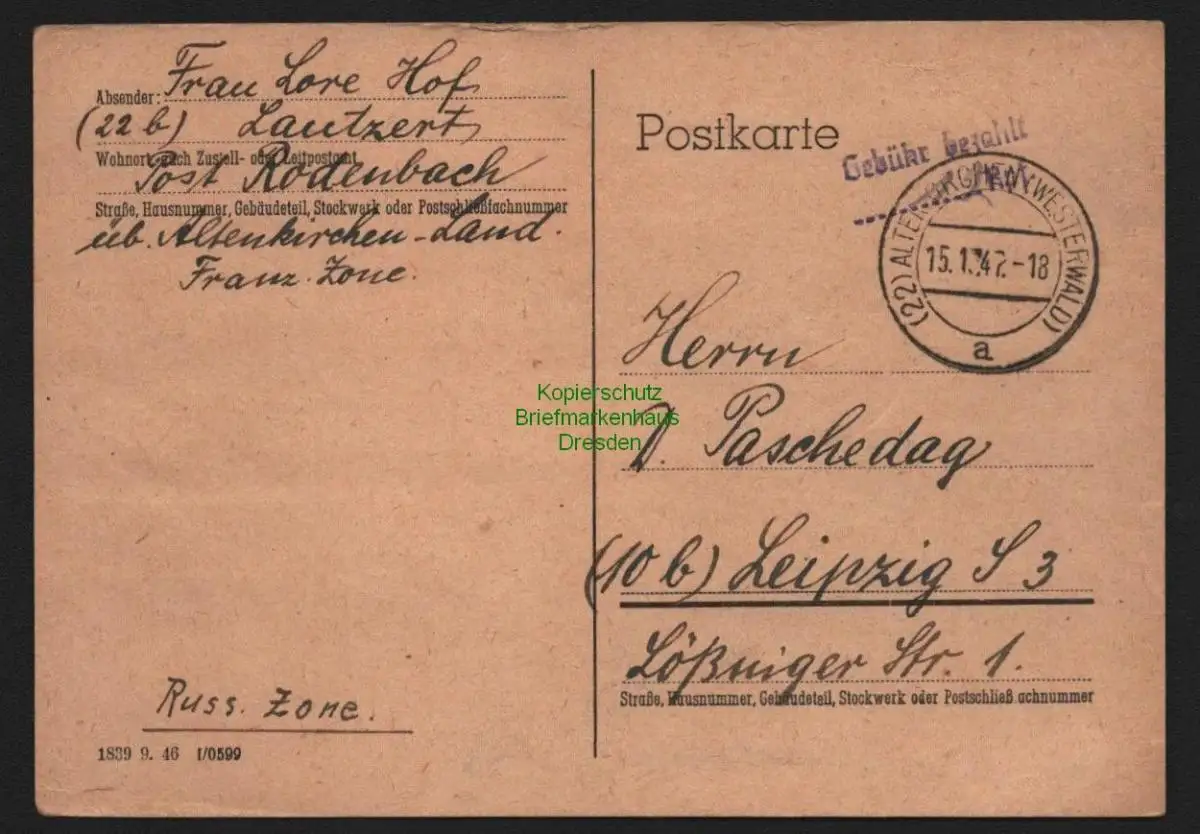 Absender: Frau Lore Hof
(22 b) Lautzert
Wohnort, auch Zustell- oder Leitpostamt
Post Rodenbach
Straße, Hausnummer, Gebäudeteil, Stockwerk oder Postschließfachnummer
üb. Altenkirchen-Land.
Franz. Zone.
Russ. Zone.
1839 9. 46 I/0599
Postkarte
Gebühr bezahlt
(22) ALTENKIRCHEN (WESTERWALD)
15.1.47.-18
a
Herrn
D. Paschedag
(10 b) Leipzig S 3
Lößniger Str. 1.
Straße, Hausnummer, Gebäudeteil, Stockwerk oder Postschließ achnummer
Kopierschutz
Briefmarkenhaus
Dresden